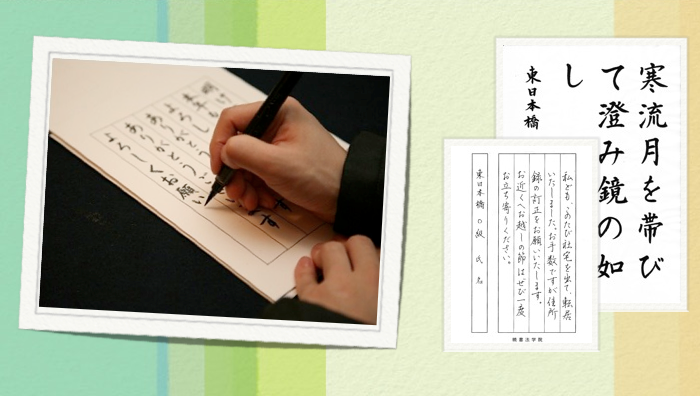 よろし
ありがとう
ありがとう
よろしくお願い
寒流月を帯び
て澄み鏡の如
し
東日本橋
私ども、このたび社宅を出て、転居
いたしました。お手数ですが住所
録の訂正をお願いいたします。
お近くへお越しの節はぜひ一度
お立ち寄りください。
東日本橋 〇級 氏名